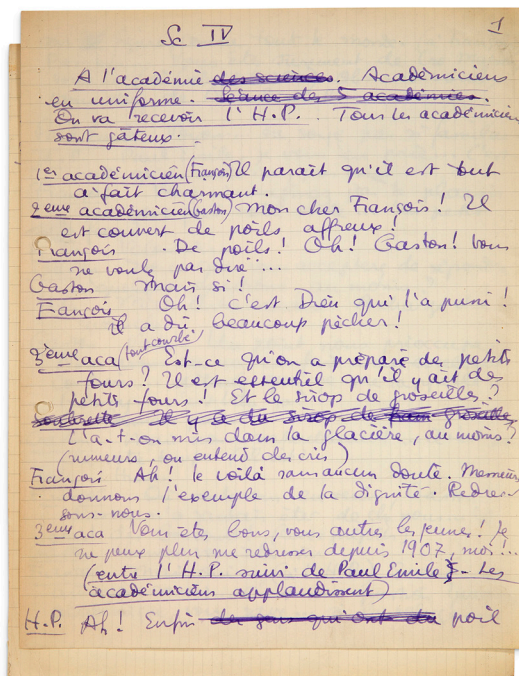 1
Sc IV
A l'académie des sciences. Académiciens
en uniforme. Séance des 5 académies.
On va recevoir l'H.P. Tous les académiciens
sont gâteux.
1er académicien (François) Il parait qu'il est tout
à fait charmant.
2ème académicien (Gaston) Mon cher François ! Il
est couvert de poils affreux !
François . De poils ! Oh ! Gaston ! Vous
ne voulez pas dire ...
Gaston Mais si !
François Oh ! C'est Dieu qui l'a puni !
il a dû beaucoup pécher !
3ème aca (tout courbé) Est-ce qu'on a préparé des petits
fours ? Il est essentiel qu'il y ait des
petits fours ! Et le sirop de groseilles ?
Il y a du sirop de groseilles
L'a-t-on mis dans la glacière, au moins ?
(rumeurs, on entend des cris)
François Ah ! le voilà sans aucun doute. Messieurs
donnons l'exemple de la dignité. Redres-
sons-nous.
3ème aca Vous êtes bons, vous autres les jeunes ! Je
ne peux plus me redresser depuis 1907, moi !..
(entre l'H.P. suivi de Paul Emile. Les
académiciens applaudissent)
H.P. Ah ! Enfin des gens qui ont du poil